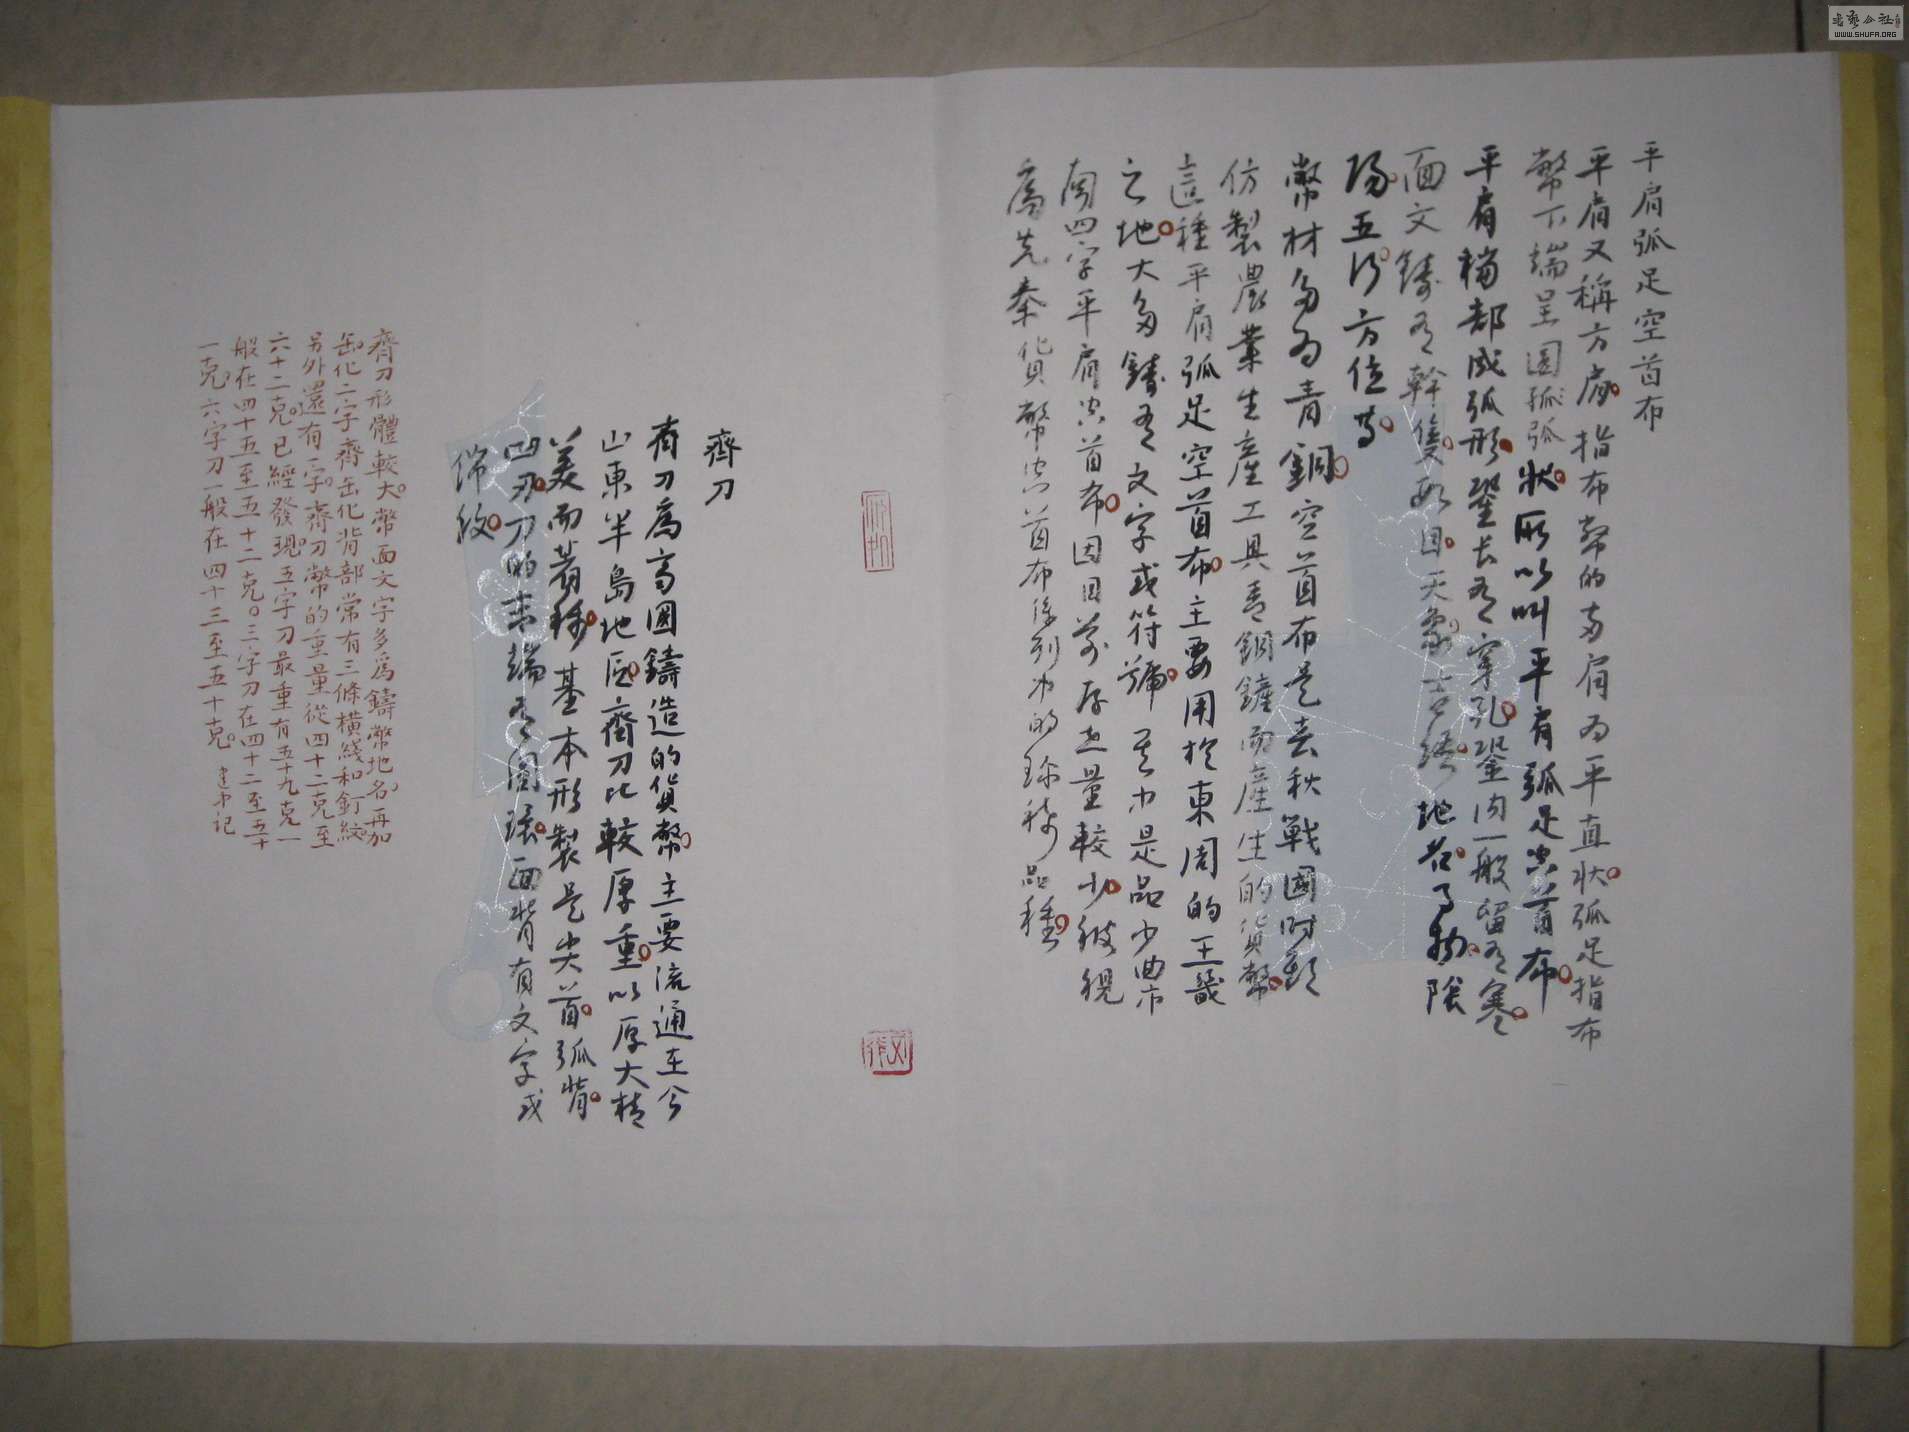 平肩弧足空首布
平肩又稱方肩指布幣的两肩为平直狀弧足指布
幣下端呈圆弧弧狀所以叫平肩弧足空首布
平肩裆部成弧形銎长有穿孔銎内一般留有
面文鑄有幹支數目天象吉語地名事物陰
陽五行方位等
幣材多为青銅空首布是春秋戰國时期
仿製農業生產工具青銅鏟而產生的貨幣
這種平肩弧足空首布主要用於東周的王畿
之地大多鑄有文字或符號其中是品少曲市
南四字平肩空首布因目前存世量較少被視
為先秦貨幣空首布系列中的珍稀品種
齊刀
齊刀為齊國鑄造的貨幣主要流通在今
山東半島地区齊刀比較厚重以厚大精
美而著称基本形製是尖首弧背
凹刃刀的末端有圆环面背有文字或
饰纹
齊刀形體較大幣面文字多爲鑄幣地名再加
缶化二字齊缶化背部常有三條橫綫和釘紋
另外還有一字齊刀幣的重量從四十二克至
六十二克已經發現五字刀最重有五十九克一
般在四十五至五十二克三字刀在四十二至五十
一克六字刀一般在四十三至五十克 建中记
書藝公社
WWW.SHUFA.ORG